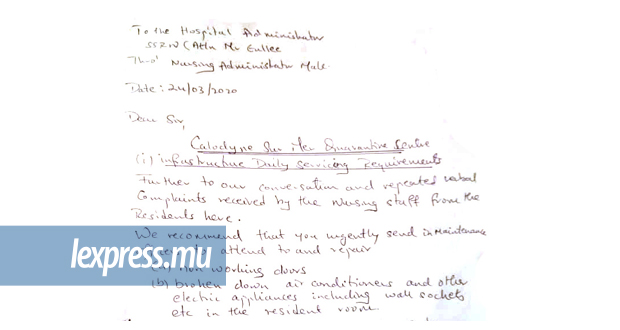 To the Hospital Administrator
SSRN (Attn Mr Gullee
Thro' Nursing Administrator Male.
Date: 24/03/2020
Dear Sir,
Calodyne Sur Mer Quarantine Centre
(i) infrastructure Daily servicing Requirements
Further to our conversation and repeated verbal
Complaints received by the Nursing staff from the
Residents here.
We recommend that you urgently send in Maintenance
attend to and repair
non working doors
(b) broken down air conditioners and other
electric appliances including wall sockets
etc in the resident room.
lexpress.mu